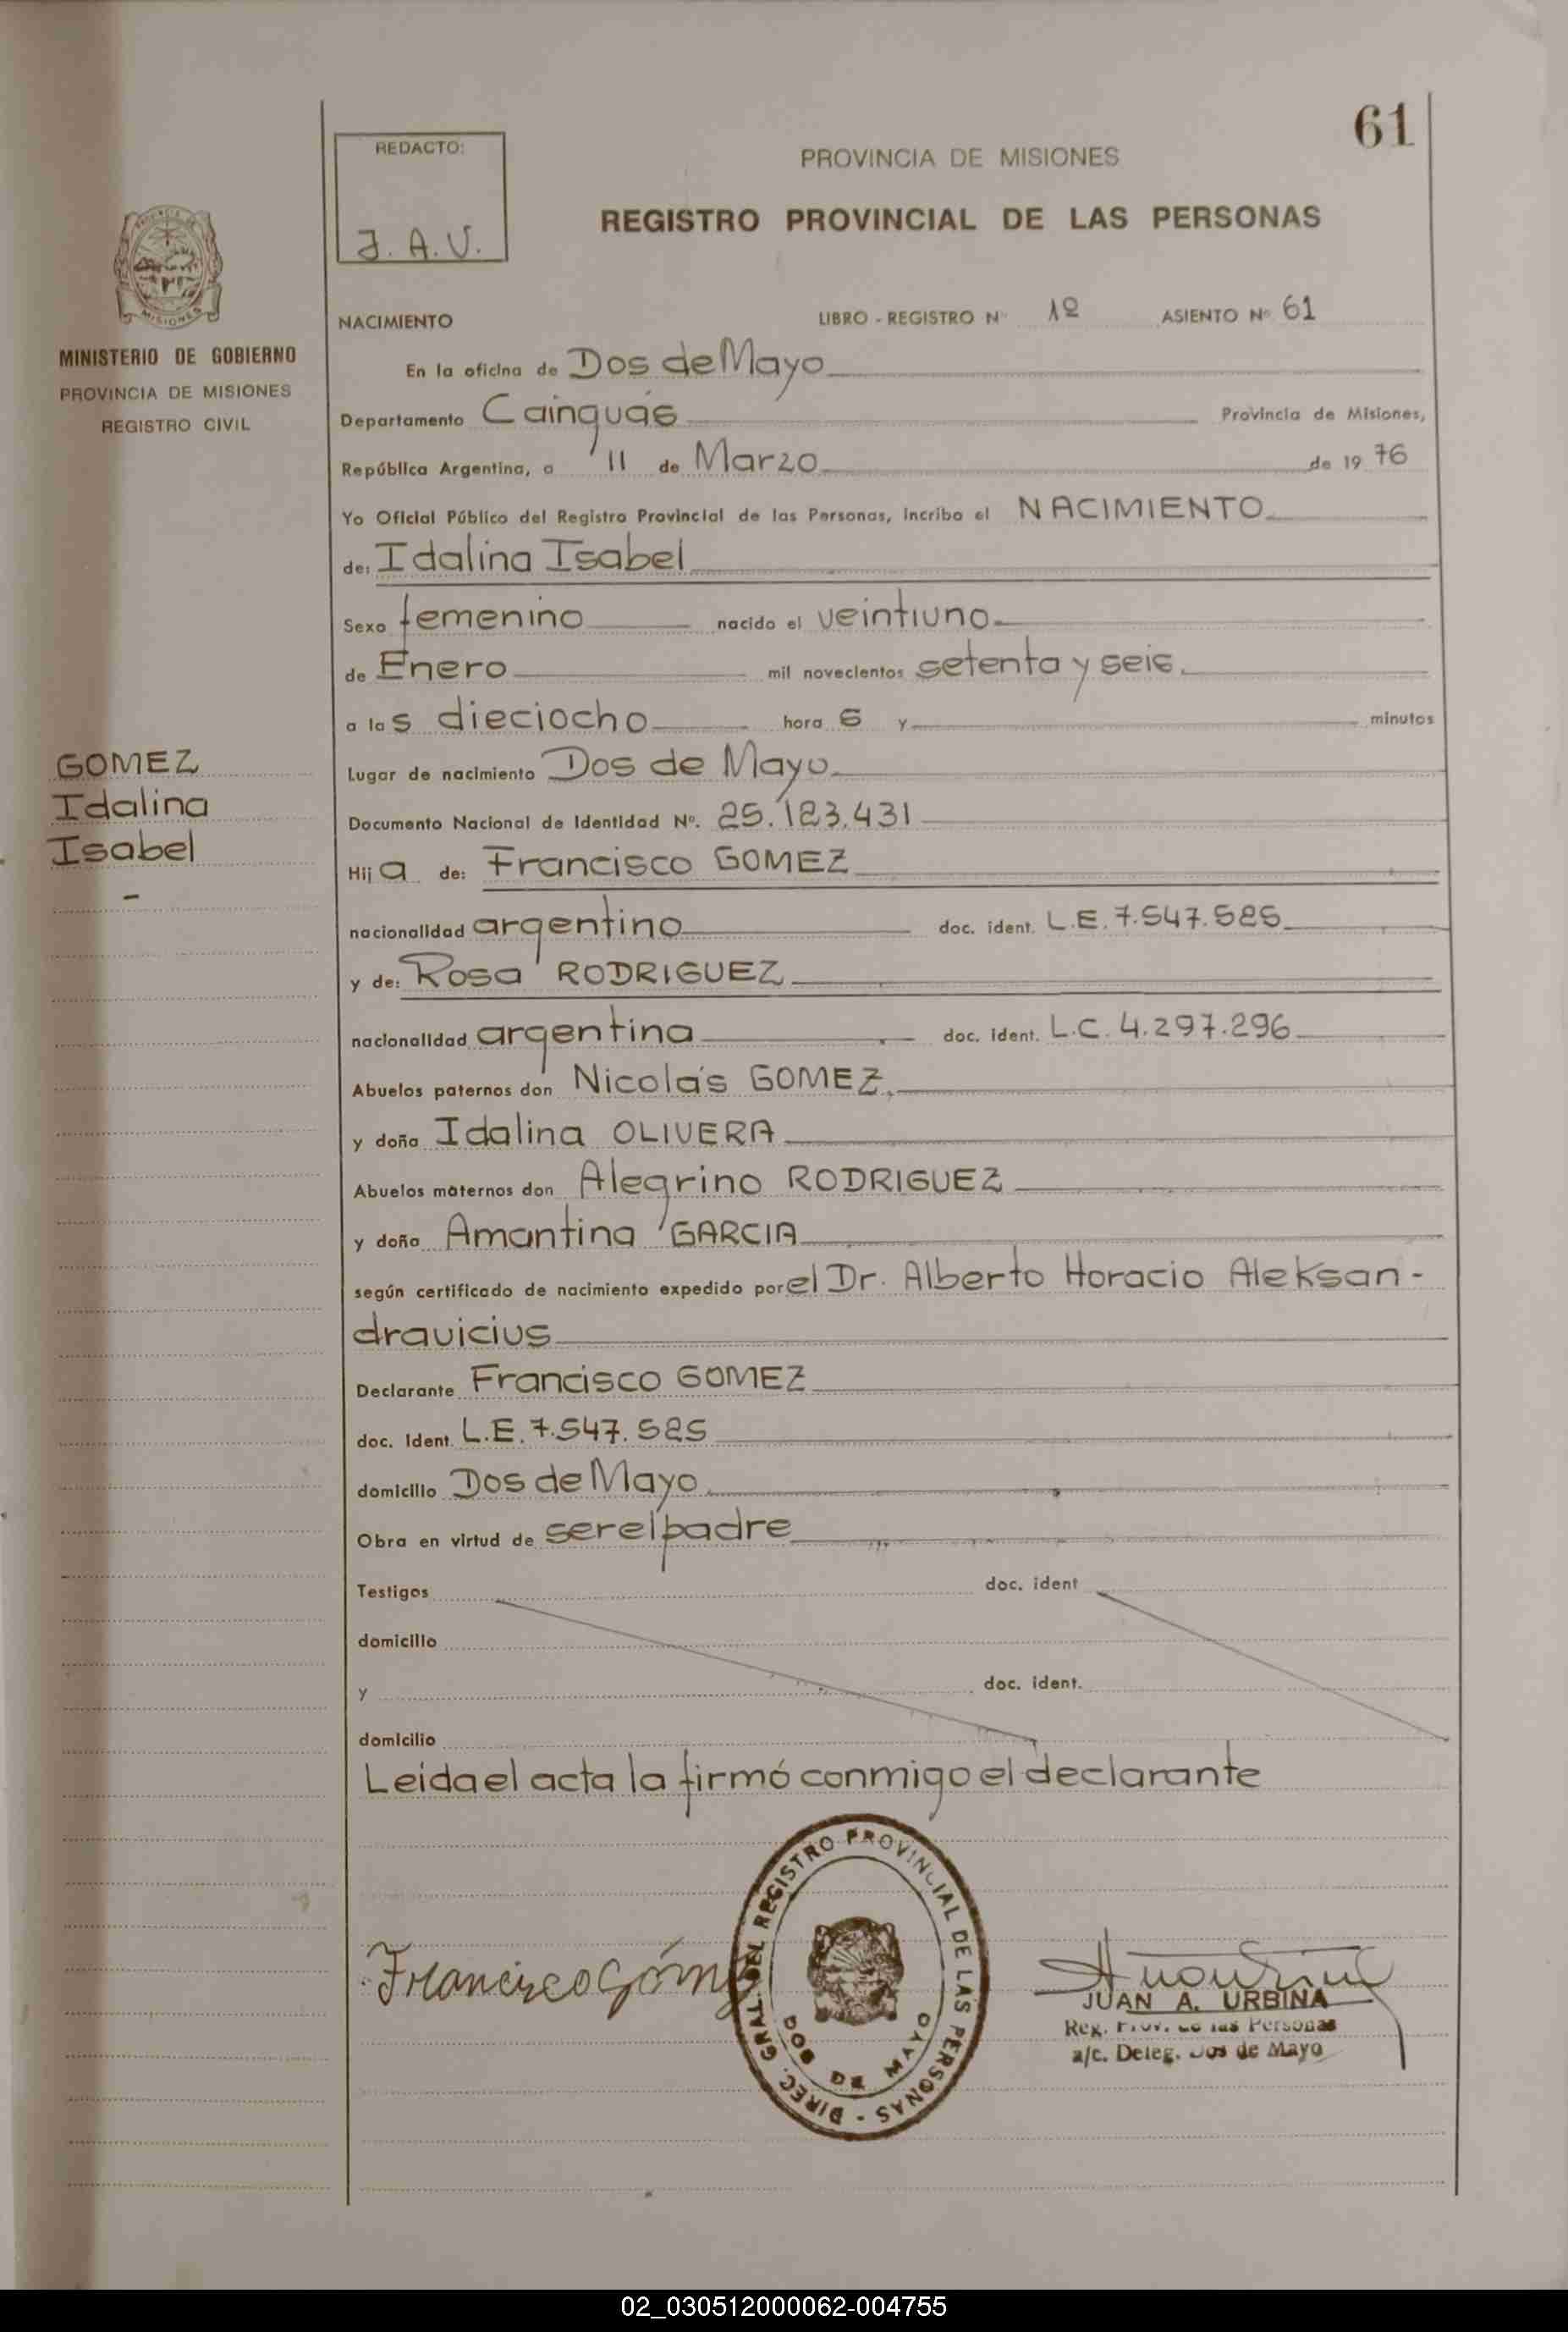 61
REDACTO:
J. A. U.
PROVINCIA DE MISIONES
REGISTRO PROVINCIAL DE LAS PERSONAS
MISIONES
MINISTERIO DE GOBIERNO
PROVINCIA DE MISIONES
REGISTRO CIVIL
GOMEZ
Idalina
Isabel
NACIMIENTO LIBRO - REGISTRO Nº 1º ASIENTO Nº 61
En la oficina de Dos de Mayo
Departamento Cainguás Provincia de Misiones,
República Argentina, a 11 de Marzo de 19 76
Yo Oficial Público del Registro Provincial de las Personas, incribo el NACIMIENTO
de: Idalina Isabel
Sexo femenino nacido el veintiuno
de Enero mil novecientos setenta y seis
a las dieciocho hora s y minutos
Lugar de nacimiento Dos de Mayo
Documento Nacional de Identidad Nº. 25.123.431
Hija de: Francisco GOMEZ
nacionalidad argentino doc. ident. L.E. 7.547.525
y de: Rosa RODRIGUEZ
nacionalidad argentina doc. ident. L.C. 4.297.296
Abuelos paternos don Nicolás GOMEZ
y doña Idalina OLIVERA
Abuelos maternos don Alegrino RODRIGUEZ
y doña Amantina GARCIA
según certificado de nacimiento expedido por el Dr. Alberto Horacio Aleksan-
dravicius
Declarante Francisco GOMEZ
doc. Ident. L.E. 7.547.525
domicilio Dos de Mayo
Obra en virtud de ser el padre
Testigos doc. ident
domicilio
y doc. ident.
domicilio
Leida el acta la firmó conmigo el declarante
Francisco Góm
DIREC. GRAL. DEL REGISTRO PROVINCIAL DE LAS PERSONAS -
DOS DE MAYO
JUAN A. URBINA
Reg. Prov. de las Personas
a/c. Deleg. Dos de Mayo
02_030512000062-004755